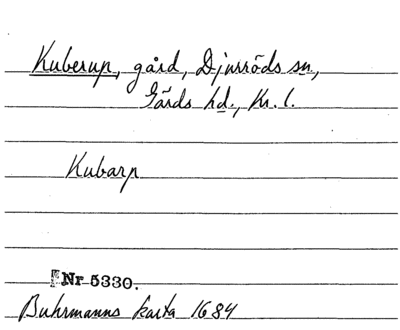 Kuberup, gård, Djurröds sn,
Gärds hd., Kr. l.
Kubarp
Nr 5330.
Buhrmanns karta 1684